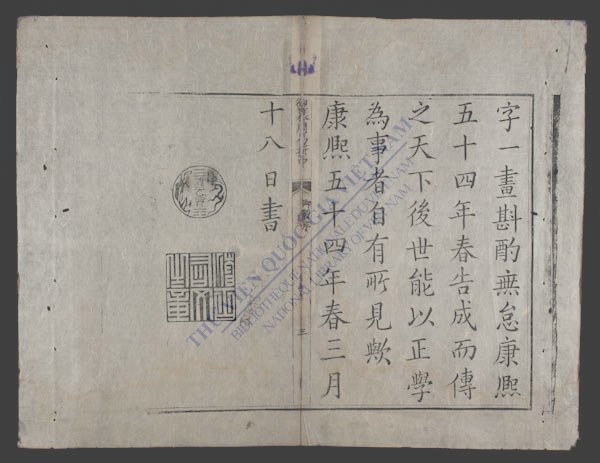 字一畫斟酌無怠康熙
五十四年春告成而傳
之天下後世能以正學
為事者自有所見歟
康熙五十四年春三月
十八日書
三
THƯ VIỆN QUỐC GIA VIỆT NAM
BIBLIOTHEQUE NATIONALE DU VIETNAM
NATIONAL LIBRARY OF VIETNAM